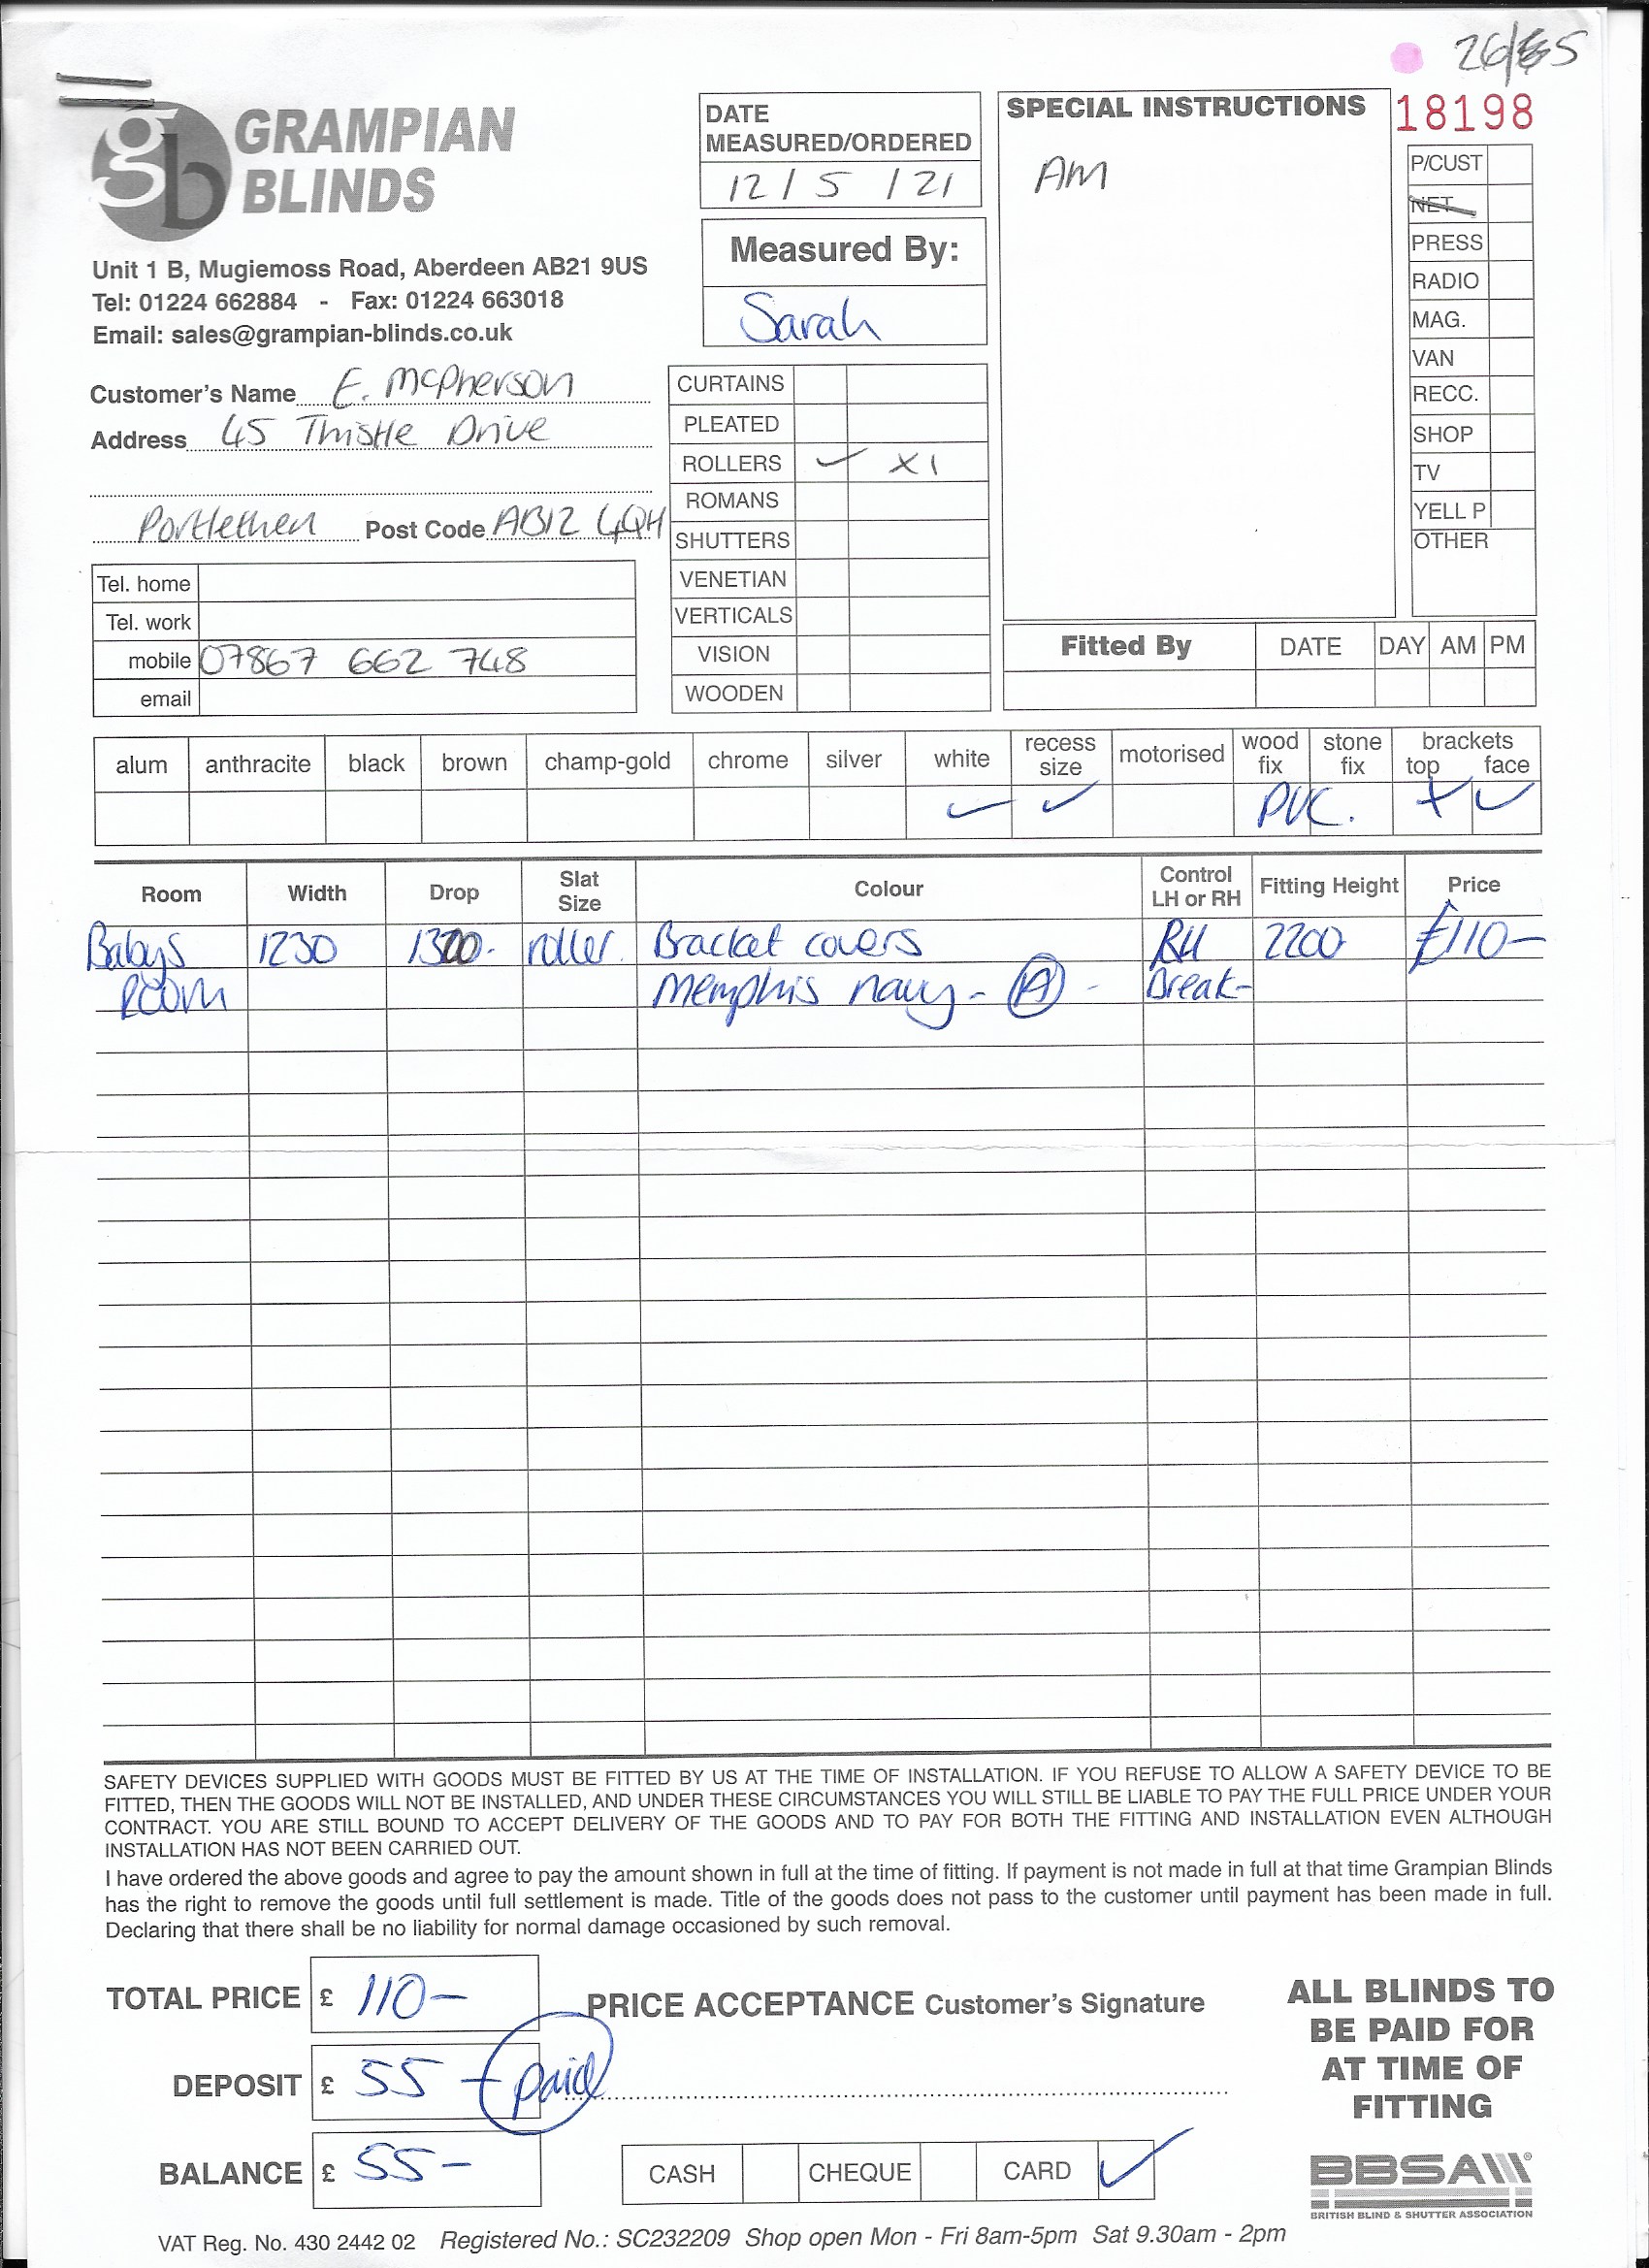 26/5
GRAMPIAN
BLINDS
Unit 1 B, Mugiemoss Road, Aberdeen AB21 9US
Tel: 01224 662884 - Fax: 01224 663018
Email: sales@grampian-blinds.co.uk
DATE
MEASURED/ORDERED
12 / 5 / 21
Measured By:
Sarah
SPECIAL INSTRUCTIONS
AM
18198
P/CUST
NET
PRESS
RADIO
MAG.
VAN
RECC.
SHOP
TV
YELL P
OTHER
Customer's Name E. McPherson
Address 45 Thistle Drive
Portlethen Post Code AB12 4QH
Tel. home
Tel. work
mobile 07867 662 748
email
CURTAINS
PLEATED
ROLLERS ✓ X1
ROMANS
SHUTTERS
VENETIAN
VERTICALS
VISION
WOODEN
Fitted By DATE DAY AM PM
alum anthracite black brown champ-gold chrome silver white recess size motorised wood fix stone fix brackets top face
✓ ✓ PVC. X ✓
Room Width Drop Slat Size Colour Control LH or RH Fitting Height Price
Babys 1230 1300- roller Bracket covers RH 2200 £110-
Room Memphis navy - A - Break-
SAFETY DEVICES SUPPLIED WITH GOODS MUST BE FITTED BY US AT THE TIME OF INSTALLATION. IF YOU REFUSE TO ALLOW A SAFETY DEVICE TO BE
FITTED, THEN THE GOODS WILL NOT BE INSTALLED, AND UNDER THESE CIRCUMSTANCES YOU WILL STILL BE LIABLE TO PAY THE FULL PRICE UNDER YOUR
CONTRACT. YOU ARE STILL BOUND TO ACCEPT DELIVERY OF THE GOODS AND TO PAY FOR BOTH THE FITTING AND INSTALLATION EVEN ALTHOUGH
INSTALLATION HAS NOT BEEN CARRIED OUT.
I have ordered the above goods and agree to pay the amount shown in full at the time of fitting. If payment is not made in full at that time Grampian Blinds
has the right to remove the goods until full settlement is made. Title of the goods does not pass to the customer until payment has been made in full.
Declaring that there shall be no liability for normal damage occasioned by such removal.
TOTAL PRICE £ 110-
PRICE ACCEPTANCE Customer's Signature
DEPOSIT £ 55 - paid
BALANCE £ 55-
CASH CHEQUE CARD ✓
ALL BLINDS TO
BE PAID FOR
AT TIME OF
FITTING
BBSA
BRITISH BLIND & SHUTTER ASSOCIATION
VAT Reg. No. 430 2442 02 Registered No.: SC232209 Shop open Mon - Fri 8am-5pm Sat 9.30am - 2pm